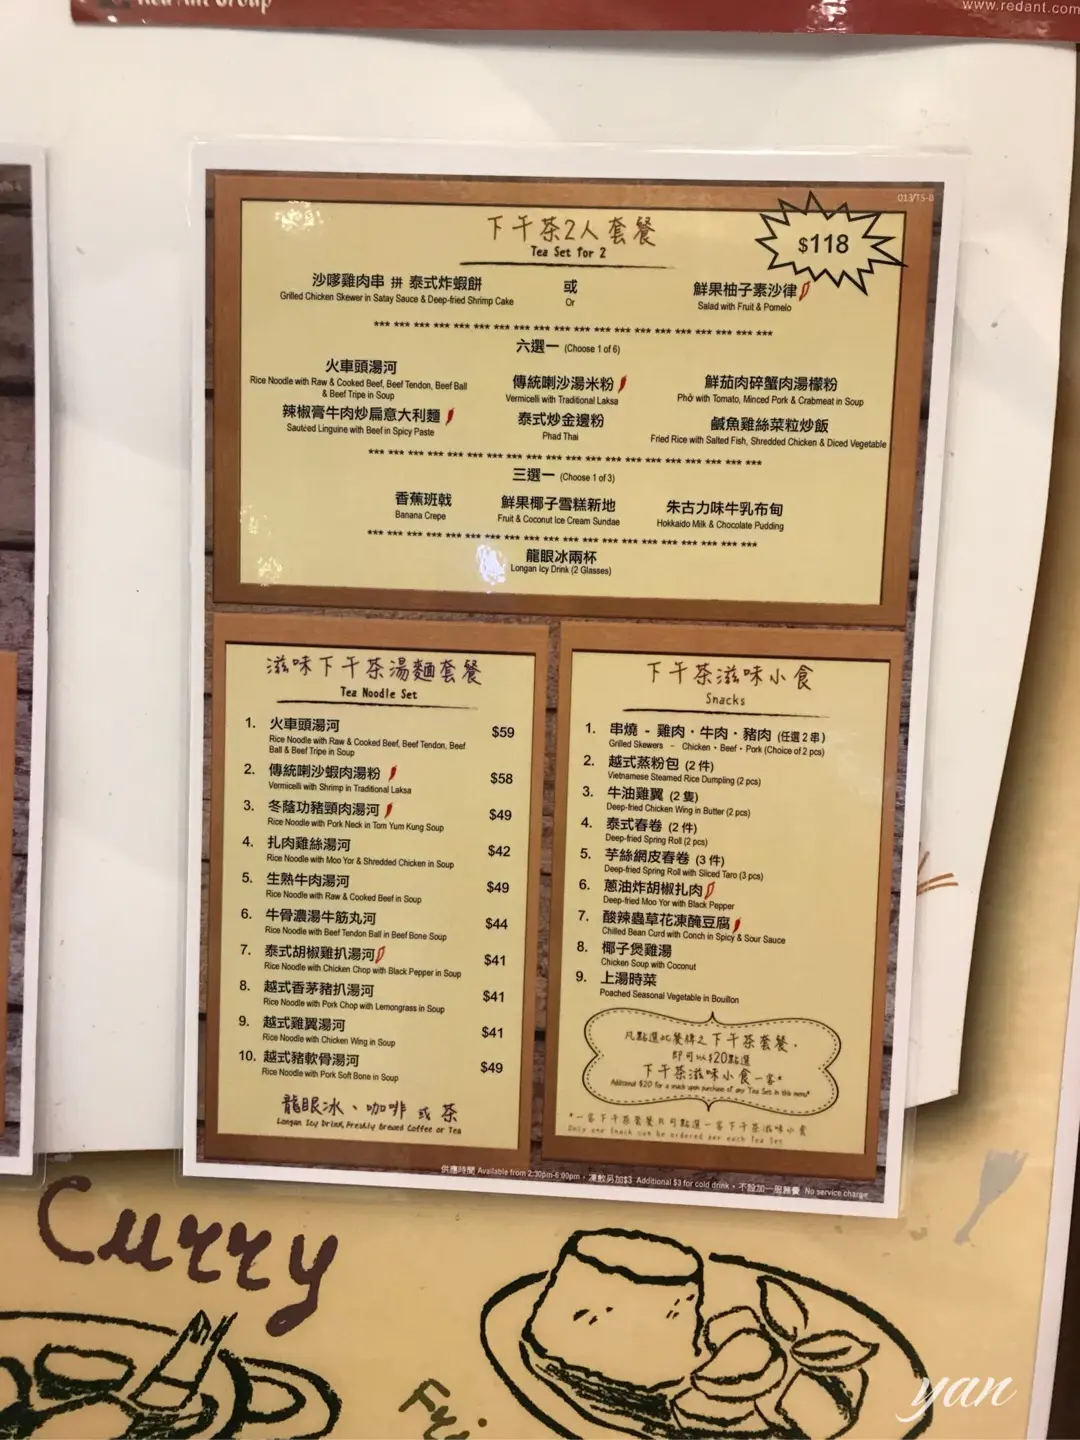 www.redant.com
013/TS-B
下午茶2人套餐
Tea Set for 2
$118
沙嗲雞肉串 拼 泰式炸蝦餅
Grilled Chicken Skewer in Satay Sauce & Deep-fried Shrimp Cake
或
Or
鮮果柚子素沙律
Salad with Fruit & Pomelo
*** *** *** *** *** *** *** *** *** *** *** *** *** *** *** *** *** *** *** ***
六選一 (Choose 1 of 6)
火車頭湯河
Rice Noodle with Raw & Cooked Beef, Beef Tendon, Beef Ball
& Beef Tripe in Soup
傳統喇沙湯米粉
Vermicelli with Traditional Laksa
鮮茄肉碎蟹肉湯檬粉
Phở with Tomato, Minced Pork & Crabmeat in Soup
辣椒膏牛肉炒扁意大利麵
Sautéed Linguine with Beef in Spicy Paste
泰式炒金邊粉
Phad Thai
鹹魚雞絲菜粒炒飯
Fried Rice with Salted Fish, Shredded Chicken & Diced Vegetable
*** *** *** *** *** *** *** *** *** *** *** *** *** *** *** *** *** *** *** ***
三選一 (Choose 1 of 3)
香蕉班戟
Banana Crepe
鮮果椰子雪糕新地
Fruit & Coconut Ice Cream Sundae
朱古力味牛乳布甸
Hokkaido Milk & Chocolate Pudding
*** *** *** *** *** *** *** *** *** *** *** *** *** *** *** *** *** *** *** ***
龍眼冰兩杯
Longan Icy Drink (2 Glasses)
滋味下午茶湯麵套餐
Tea Noodle Set
1. 火車頭湯河 $59
Rice Noodle with Raw & Cooked Beef, Beef Tendon, Beef
Ball & Beef Tripe in Soup
2. 傳統喇沙蝦肉湯粉 $58
Vermicelli with Shrimp in Traditional Laksa
3. 冬蔭功豬頸肉湯河 $49
Rice Noodle with Pork Neck in Tom Yum Kung Soup
4. 扎肉雞絲湯河 $42
Rice Noodle with Moo Yor & Shredded Chicken in Soup
5. 生熟牛肉湯河 $49
Rice Noodle with Raw & Cooked Beef in Soup
6. 牛骨濃湯牛筋丸河 $44
Rice Noodle with Beef Tendon Ball in Beef Bone Soup
7. 泰式胡椒雞扒湯河 $41
Rice Noodle with Chicken Chop with Black Pepper in Soup
8. 越式香茅豬扒湯河 $41
Rice Noodle with Pork Chop with Lemongrass in Soup
9. 越式雞翼湯河 $41
Rice Noodle with Chicken Wing in Soup
10. 越式豬軟骨湯河 $49
Rice Noodle with Pork Soft Bone in Soup
龍眼冰、咖啡 或 茶
Longan Icy Drink, Freshly Brewed Coffee or Tea
下午茶滋味小食
Snacks
1. 串燒 - 雞肉・牛肉・豬肉 (任選2串)
Grilled Skewers - Chicken・Beef・Pork (Choice of 2 pcs)
2. 越式蒸粉包 (2 件)
Vietnamese Steamed Rice Dumpling (2 pcs)
3. 牛油雞翼 (2 隻)
Deep-fried Chicken Wing in Butter (2 pcs)
4. 泰式春卷 (2 件)
Deep-fried Spring Roll (2 pcs)
5. 芋絲網皮春卷 (3 件)
Deep-fried Spring Roll with Sliced Taro (3 pcs)
6. 蔥油炸胡椒扎肉
Deep-fried Moo Yor with Black Pepper
7. 酸辣蟲草花凍醃豆腐
Chilled Bean Curd with Conch in Spicy & Sour Sauce
8. 椰子煲雞湯
Chicken Soup with Coconut
9. 上湯時菜
Poached Seasonal Vegetable in Bouillon
凡點選此餐牌之下午茶套餐，
即可以$20點選
下午茶滋味小食一客*
Additional $20 for a snack upon purchase of any Tea Set in this menu*
*一客下午茶套餐只可點選一客下午茶滋味小食
Only one Snack can be ordered per each Tea Set
供應時間 Available from 2:30pm-6:00pm・凍飲另加$3 Additional $3 for cold drink・不設加一服務費 No service charge
Curry
yan